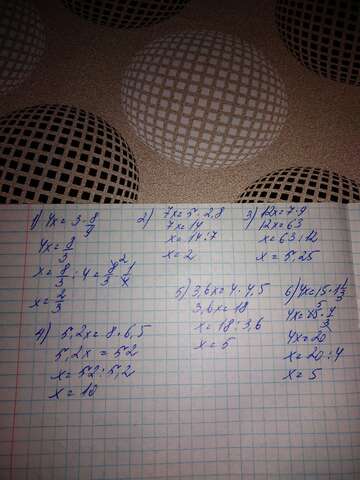 1) 4x = 3 · 8/9
4x = 8/3
x = 8/3 : 4 = 8/3 · 1/4
x = 2/3
2) 7x = 5 · 2,8
7x = 14
x = 14 : 7
x = 2
3) 12x = 7 · 9
12x = 63
x = 63 : 12
x = 5,25
4) 5,2x = 8 · 6,5
5,2x = 52
x = 52 : 5,2
x = 10
5) 3,6x = 4 · 4,5
3,6x = 18
x = 18 : 3,6
x = 5
6) 4x = 15 · 1 1/3
4x = 15 · 4/3
4x = 20
x = 20 : 4
x = 5